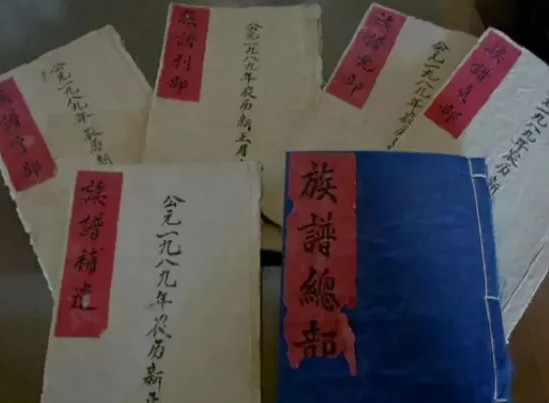 族譜亨部
公元一九八九年农历新
族譜利部
公元一九八九年农历新正月
族譜元部
公元一九八九年农历
族譜貞部
公元一九八九年农历新
族譜補遺
公元一九八九年农历新正
族譜總部